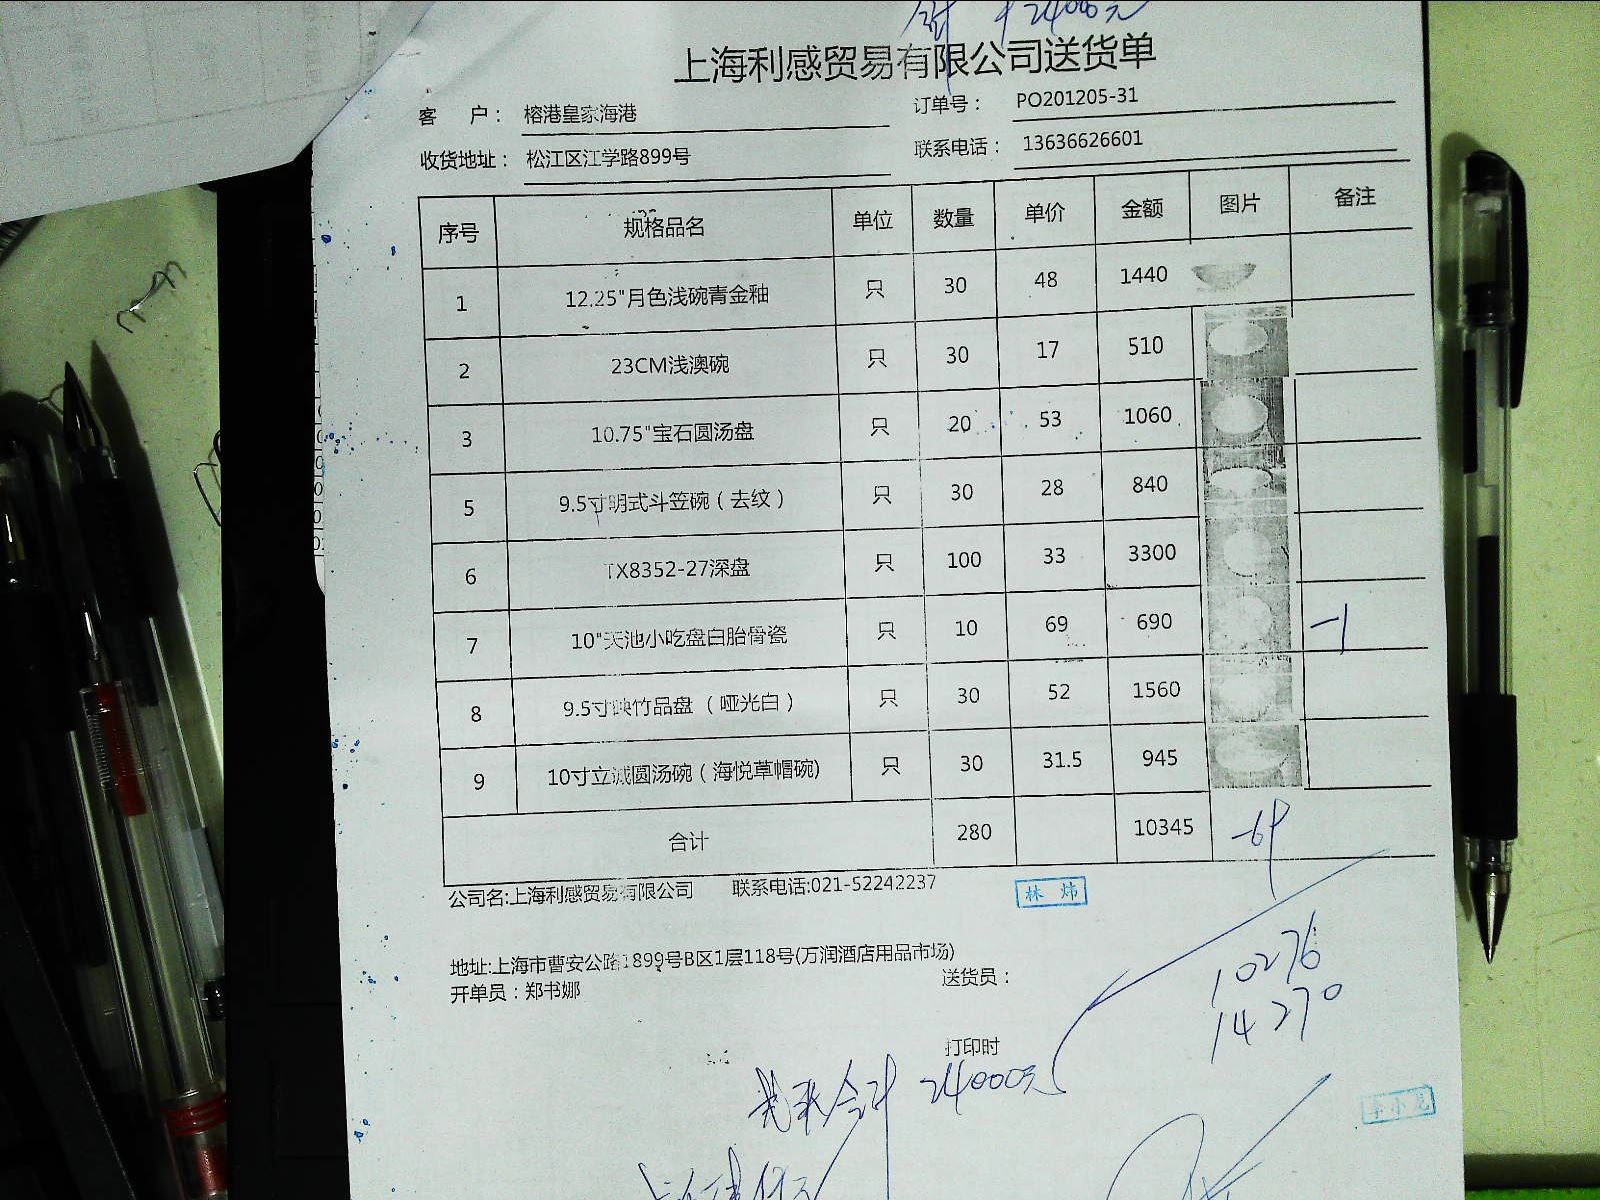 24000元
上海利感贸易有限公司送货单
客 户： 榕港皇家海港 订单号： PO201205-31
收货地址： 松江区江学路899号 联系电话： 13636626601
序号 规格品名 单位 数量 单价 金额 图片 备注
1 12.25"月色浅碗青金釉 只 30 48 1440
2 23CM浅澳碗 只 30 17 510
3 10.75"宝石圆汤盘 只 20 53 1060
5 9.5寸明式斗笠碗（去纹） 只 30 28 840
6 TX8352-27深盘 只 100 33 3300
7 10"天池小吃盘白胎骨瓷 只 10 69 690 -1
8 9.5寸映竹品盘（哑光白） 只 30 52 1560
9 10寸立减圆汤碗（海悦草帽碗) 只 30 31.5 945
合计 280 10345 -69
公司名:上海利感贸易有限公司 联系电话:021-52242237 林炜
地址:上海市曹安公路1899号B区1层118号(万润酒店用品市场)
开单员：郑书娜 送货员：
10276
14270
打印时
合计 24000元